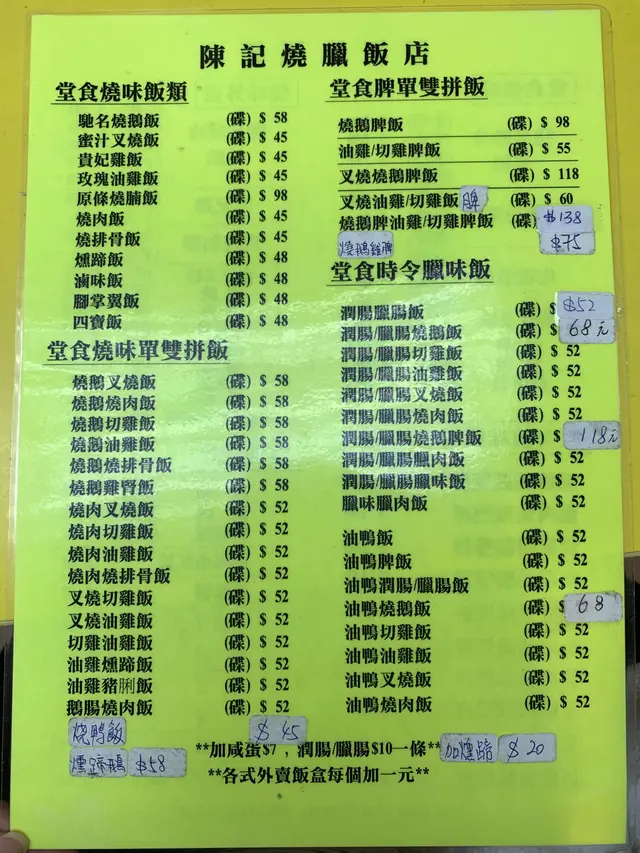 陳記燒臘飯店
堂食燒味飯類
馳名燒鵝飯 (碟) $ 58
蜜汁叉燒飯 (碟) $ 45
貴妃雞飯 (碟) $ 45
玫瑰油雞飯 (碟) $ 45
原條燒腩飯 (碟) $ 98
燒肉飯 (碟) $ 45
燒排骨飯 (碟) $ 45
燻蹄飯 (碟) $ 48
滷味飯 (碟) $ 48
腳掌翼飯 (碟) $ 48
四寶飯 (碟) $ 48
堂食燒味單雙拼飯
燒鵝叉燒飯 (碟) $ 58
燒鵝燒肉飯 (碟) $ 58
燒鵝切雞飯 (碟) $ 58
燒鵝油雞飯 (碟) $ 58
燒鵝燒排骨飯 (碟) $ 58
燒鵝雞腎飯 (碟) $ 58
燒肉叉燒飯 (碟) $ 52
燒肉切雞飯 (碟) $ 52
燒肉油雞飯 (碟) $ 52
燒肉燒排骨飯 (碟) $ 52
叉燒切雞飯 (碟) $ 52
叉燒油雞飯 (碟) $ 52
切雞油雞飯 (碟) $ 52
油雞燻蹄飯 (碟) $ 52
油雞豬脷飯 (碟) $ 52
鵝腸燒肉飯 (碟) $ 52
烧鸭飯 $45
燻蹄鵝 $58
堂食脾單雙拼飯
燒鵝脾飯 (碟) $ 98
油雞/切雞脾飯 (碟) $ 55
叉燒燒鵝脾飯 (碟) $ 118
叉燒油雞/切雞飯 脾 (碟) $ 60
燒鵝脾油雞/切雞脾飯 (碟) $138
燒鵝雞脾 $75
堂食時令臘味飯
潤腸臘腸飯 (碟) $ $52
潤腸/臘腸燒鵝飯 (碟) $ 68元
潤腸/臘腸切雞飯 (碟) $ 52
潤腸/臘腸油雞飯 (碟) $ 52
潤腸/臘腸叉燒飯 (碟) $ 52
潤腸/臘腸燒肉飯 (碟) $ 52
潤腸/臘腸燒鵝脾飯 (碟) $ 118元
潤腸/臘腸臘肉飯 (碟) $ 52
潤腸/臘腸臘味飯 (碟) $ 52
臘味臘肉飯 (碟) $ 52
油鴨飯 (碟) $ 52
油鴨脾飯 (碟) $ 52
油鴨潤腸/臘腸飯 (碟) $ 52
油鴨燒鵝飯 (碟) $ 68
油鴨切雞飯 (碟) $ 52
油鴨油雞飯 (碟) $ 52
油鴨叉燒飯 (碟) $ 52
油鴨燒肉飯 (碟) $ 52
**加咸蛋$7 , 潤腸/臘腸$10一條** 加燻蹄 $20
**各式外賣飯盒每個加一元**